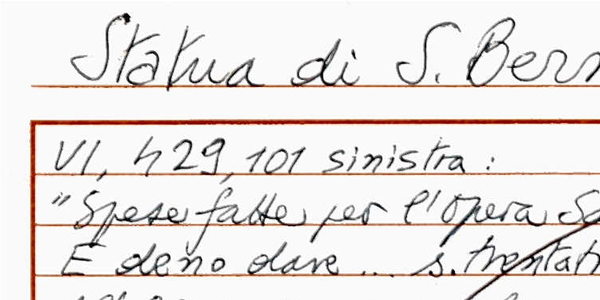 Statua di S. Bern
VI, 429, 101 sinistra:
"Spese fatte per l'opera Sa
E deno dare ... s. trentat